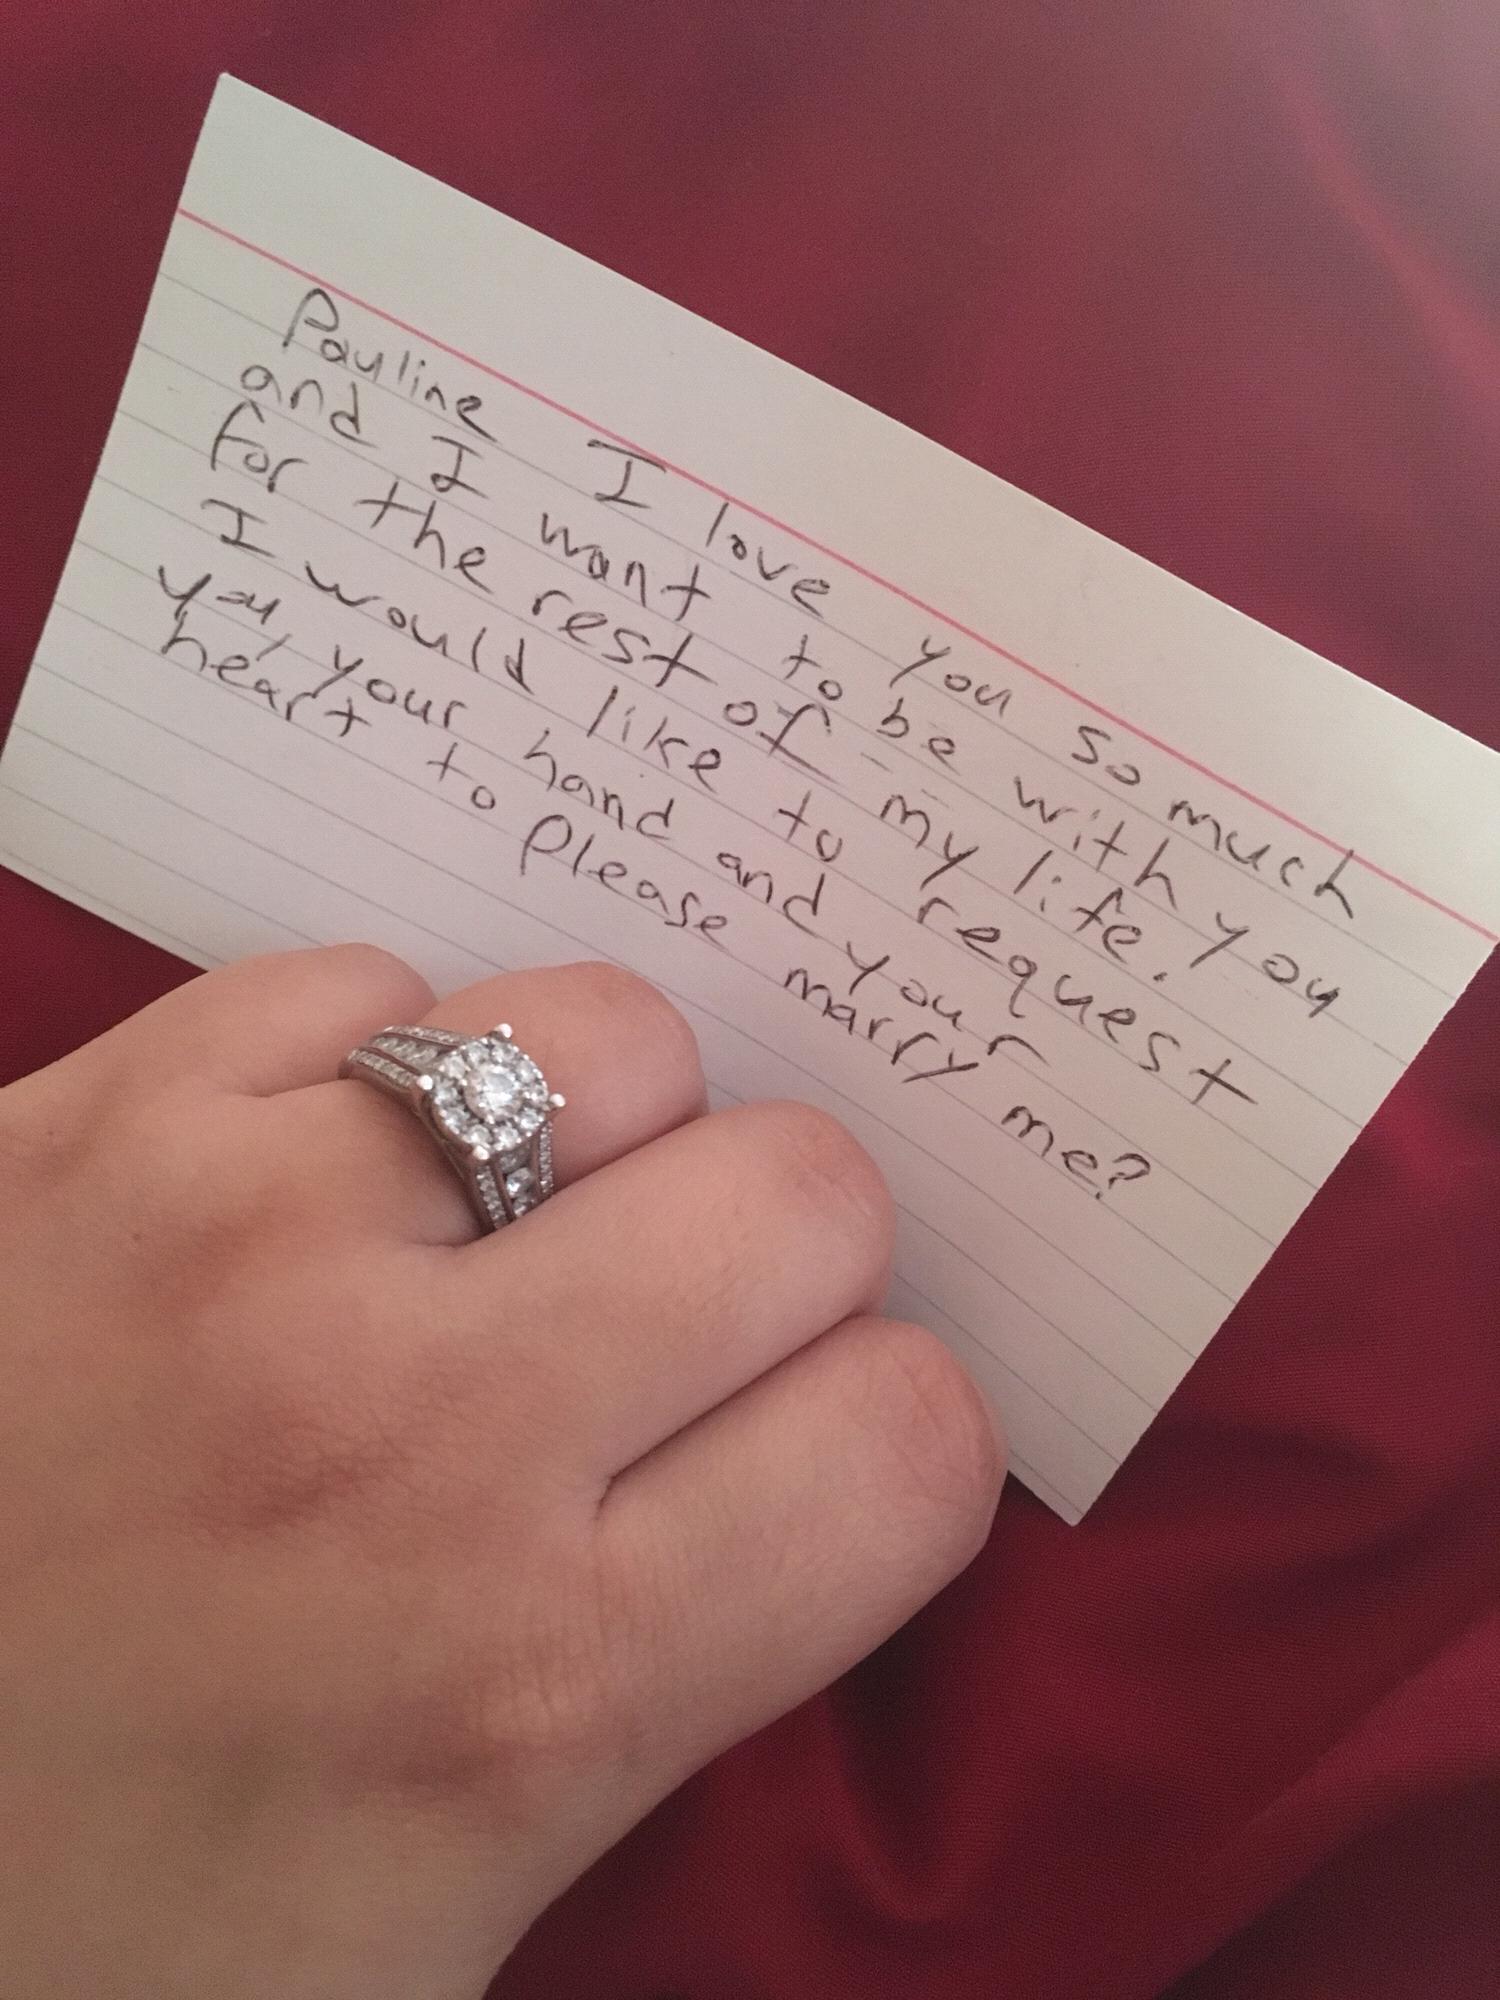 Pauline I love you so much
and I want to be with you
for the rest of my life.
I would like to request
you, your hand and your
heart to please marry me?